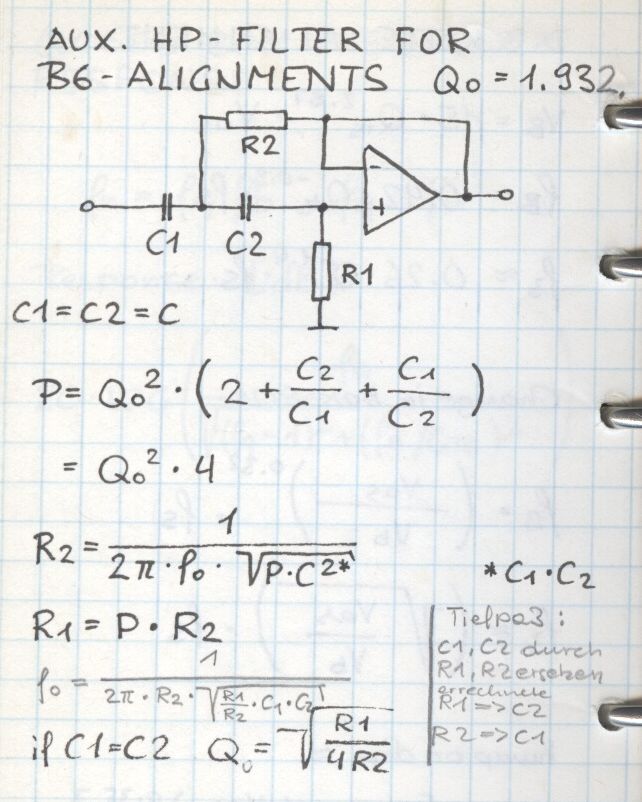 AUX. HP-FILTER FOR
B6-ALIGNMENTS Q₀ = 1.932.
R2
-
+
C1 C2
R1
C1 = C2 = C
P = Q₀² · (2 + C2/C1 + C1/C2)
= Q₀² · 4
R2 = 1/(2π · f₀ · √(P·C²*)) * C1·C2
R1 = P · R2
f₀ = 1/(2π · R2 · √(R1/R2 · C1 · C2))
if C1=C2 Q₀ = √(R1/4R2)
Tiefpaß:
C1, C2 durch
R1, R2 ersetzen
errechnete
R1 => C2
R2 => C1